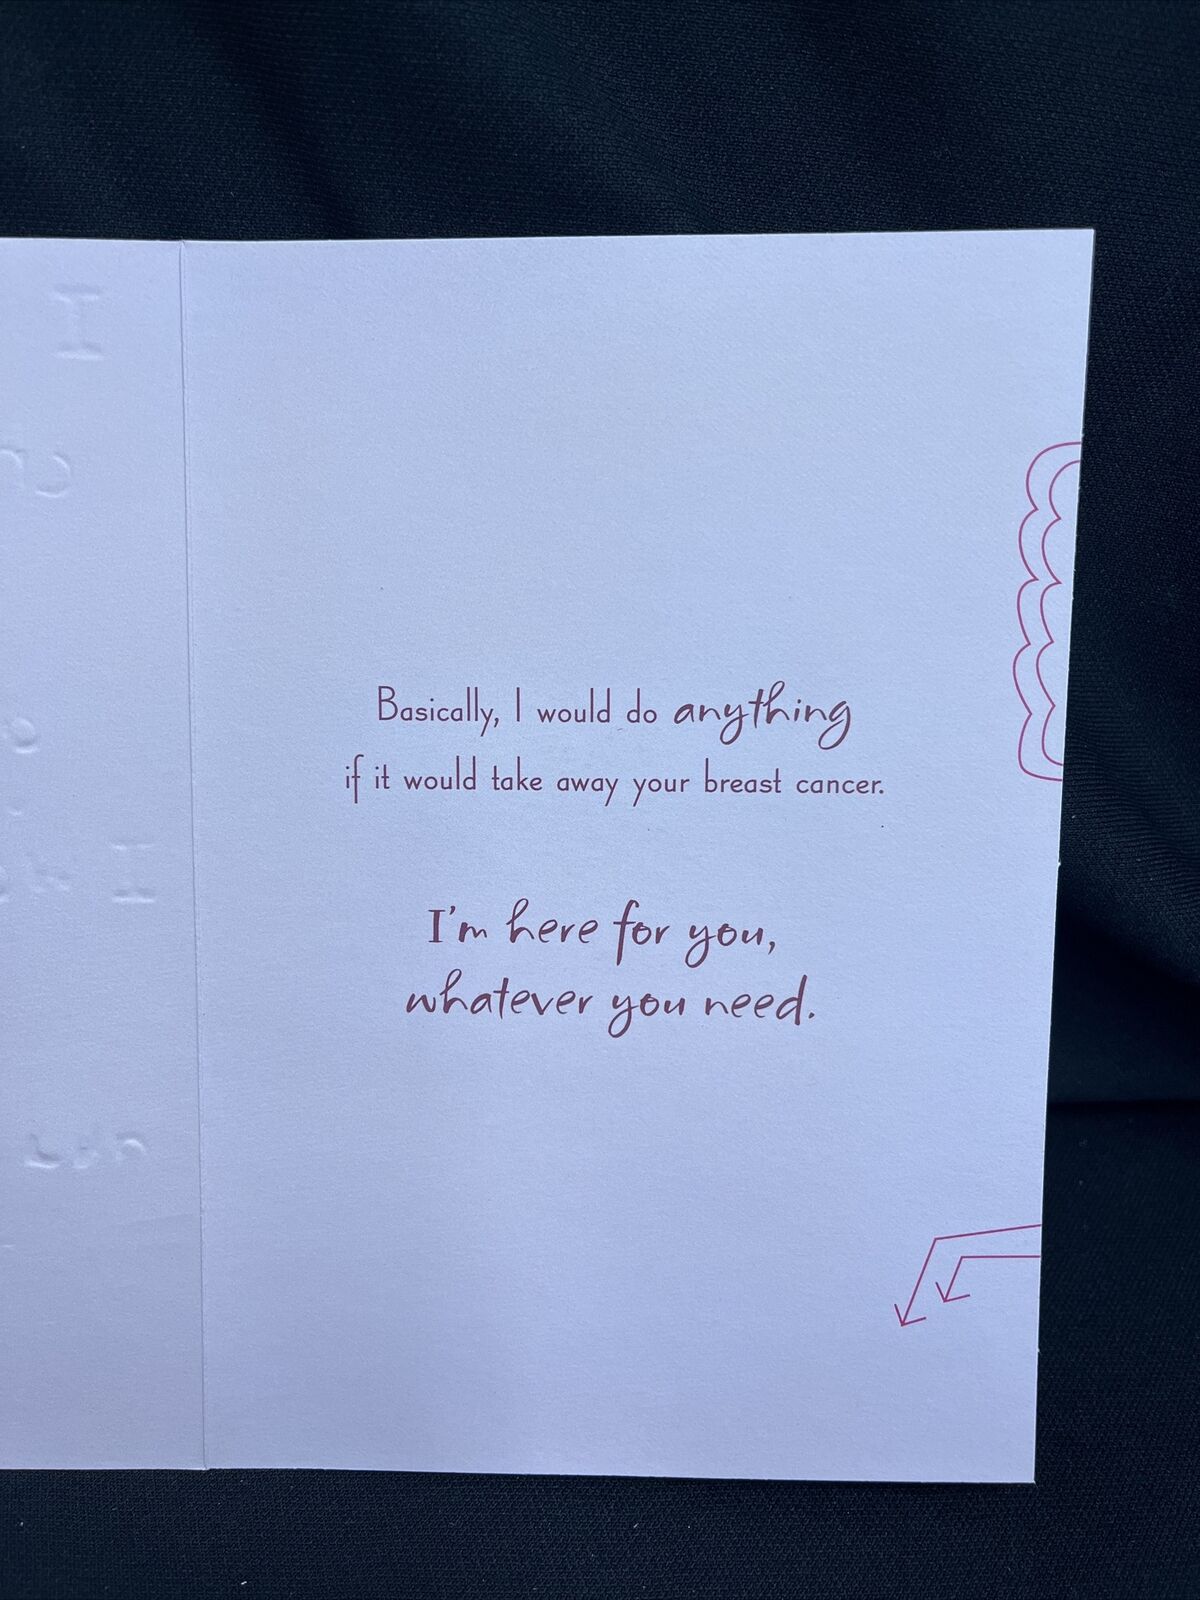 Basically, I would do anything
if it would take away your breast cancer.
I'm here for you,
whatever you need.